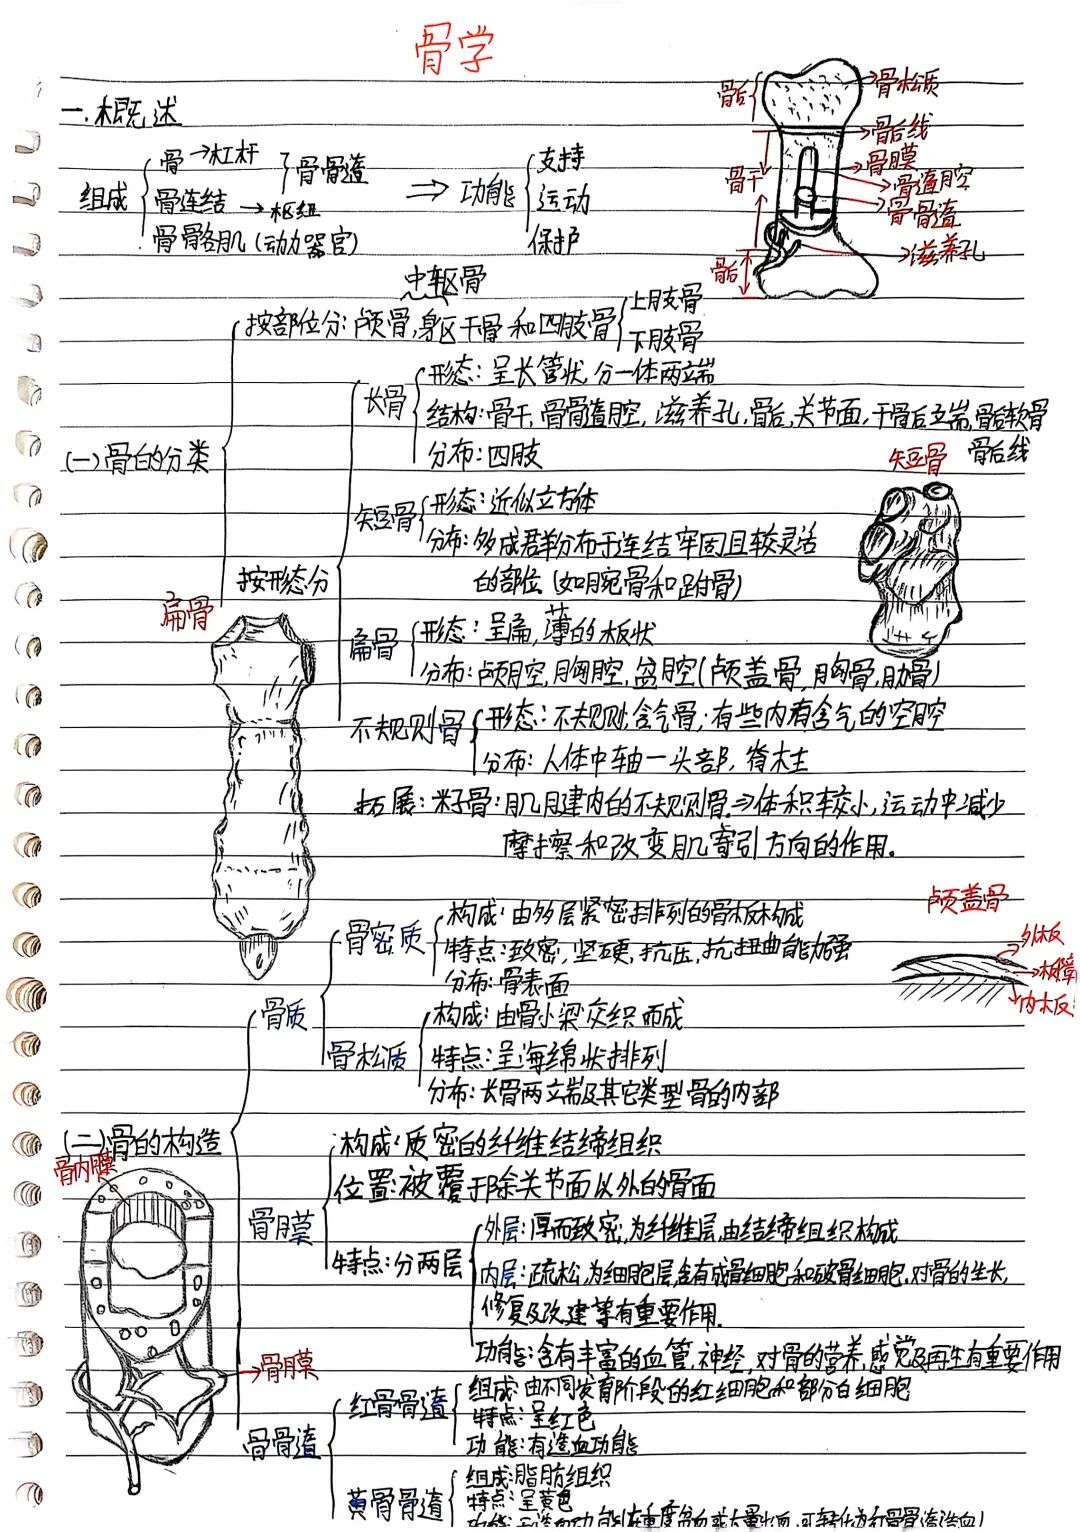 骨学
一.概述
组成
骨→杠杆
骨连结→枢纽
骨骼肌(动力器官)
骨骼
⇒功能
支持
运动
保护
骨松质
骨后线
骨膜
骨干
滋养孔
中轴骨
(一)骨的分类
按部位分:颅骨,躯干骨和四肢骨
上肢骨
下肢骨
按形态分
长骨
形态:呈长管状,分一体两端
结构:骨干,骨髓腔,滋养孔,骨后,关节面,干骨后端,骨后软骨
骨后线
分布:四肢
短骨
短骨
形态:近似立方体
分布:多成群分布于连结牢固且较灵活
的部位(如腕骨和跗骨)
扁骨
扁骨
形态:呈扁,薄的板状
分布:颅腔,胸腔,盆腔(颅盖骨,胸骨,肋骨)
不规则骨
形态:不规则,含气骨;有些内有含气的空腔
分布:人体中轴一头部,脊柱
拓展:籽骨:肌腱内的不规则骨⇒体积较小,运动中减少
摩擦和改变肌牵引方向的作用.
颅盖骨
外板
板障
内板
(二)骨的构造
骨质
骨密质
构成:由多层紧密排列的骨板构成
特点:致密,坚硬,抗压,抗扭曲能力强
分布:骨表面
骨松质
构成:由骨小梁交织而成
特点:呈海绵状排列
分布:长骨两端及其它类型骨的内部
骨内膜
骨膜
骨膜
构成:质密的纤维结缔组织
位置:被覆于除关节面以外的骨面
特点:分两层
外层:厚而致密,为纤维层,由结缔组织构成
内层:疏松,为细胞层,含有成骨细胞和破骨细胞,对骨的生长,
修复及改建等有重要作用.
功能:含有丰富的血管,神经,对骨的营养,感觉及再生有重要作用
骨髓
红骨髓
组成:由不同发育阶段的红细胞和部分白细胞
特点:呈红色
功能:有造血功能
黄骨髓
组成:脂肪组织
特点:呈黄色